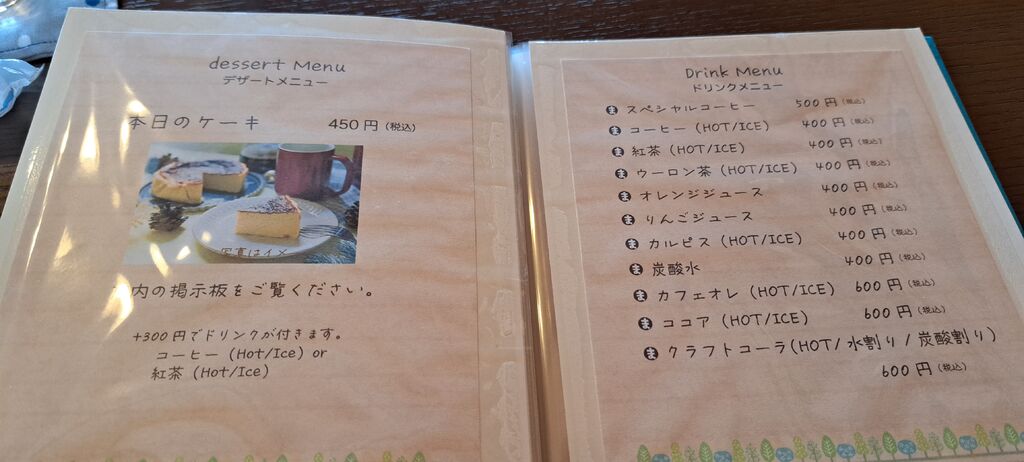 dessert Menu
デザートメニュー
本日のケーキ 450円(税込)
写真はイメ
内の掲示板をご覧ください。
+300円でドリンクが付きます。
コーヒー (Hot/Ice) or
紅茶 (Hot/Ice)
Drink Menu
ドリンクメニュー
ま スペシャルコーヒー 500円(税込)
ま コーヒー (HOT/ICE) 400円(税込)
ま 紅茶 (HOT/ICE) 400円(税込)
ま ウーロン茶 (HOT/ICE) 400円(税込)
ま オレンジジュース 400円(税込)
ま りんごジュース 400円(税込)
ま カルピス (HOT/ICE) 400円(税込)
ま 炭酸水 400円(税込)
ま カフェオレ (HOT/ICE) 600円(税込)
ま ココア (HOT/ICE) 600円(税込)
ま クラフトコーラ(HOT/水割り/炭酸割り)
600円(税込)